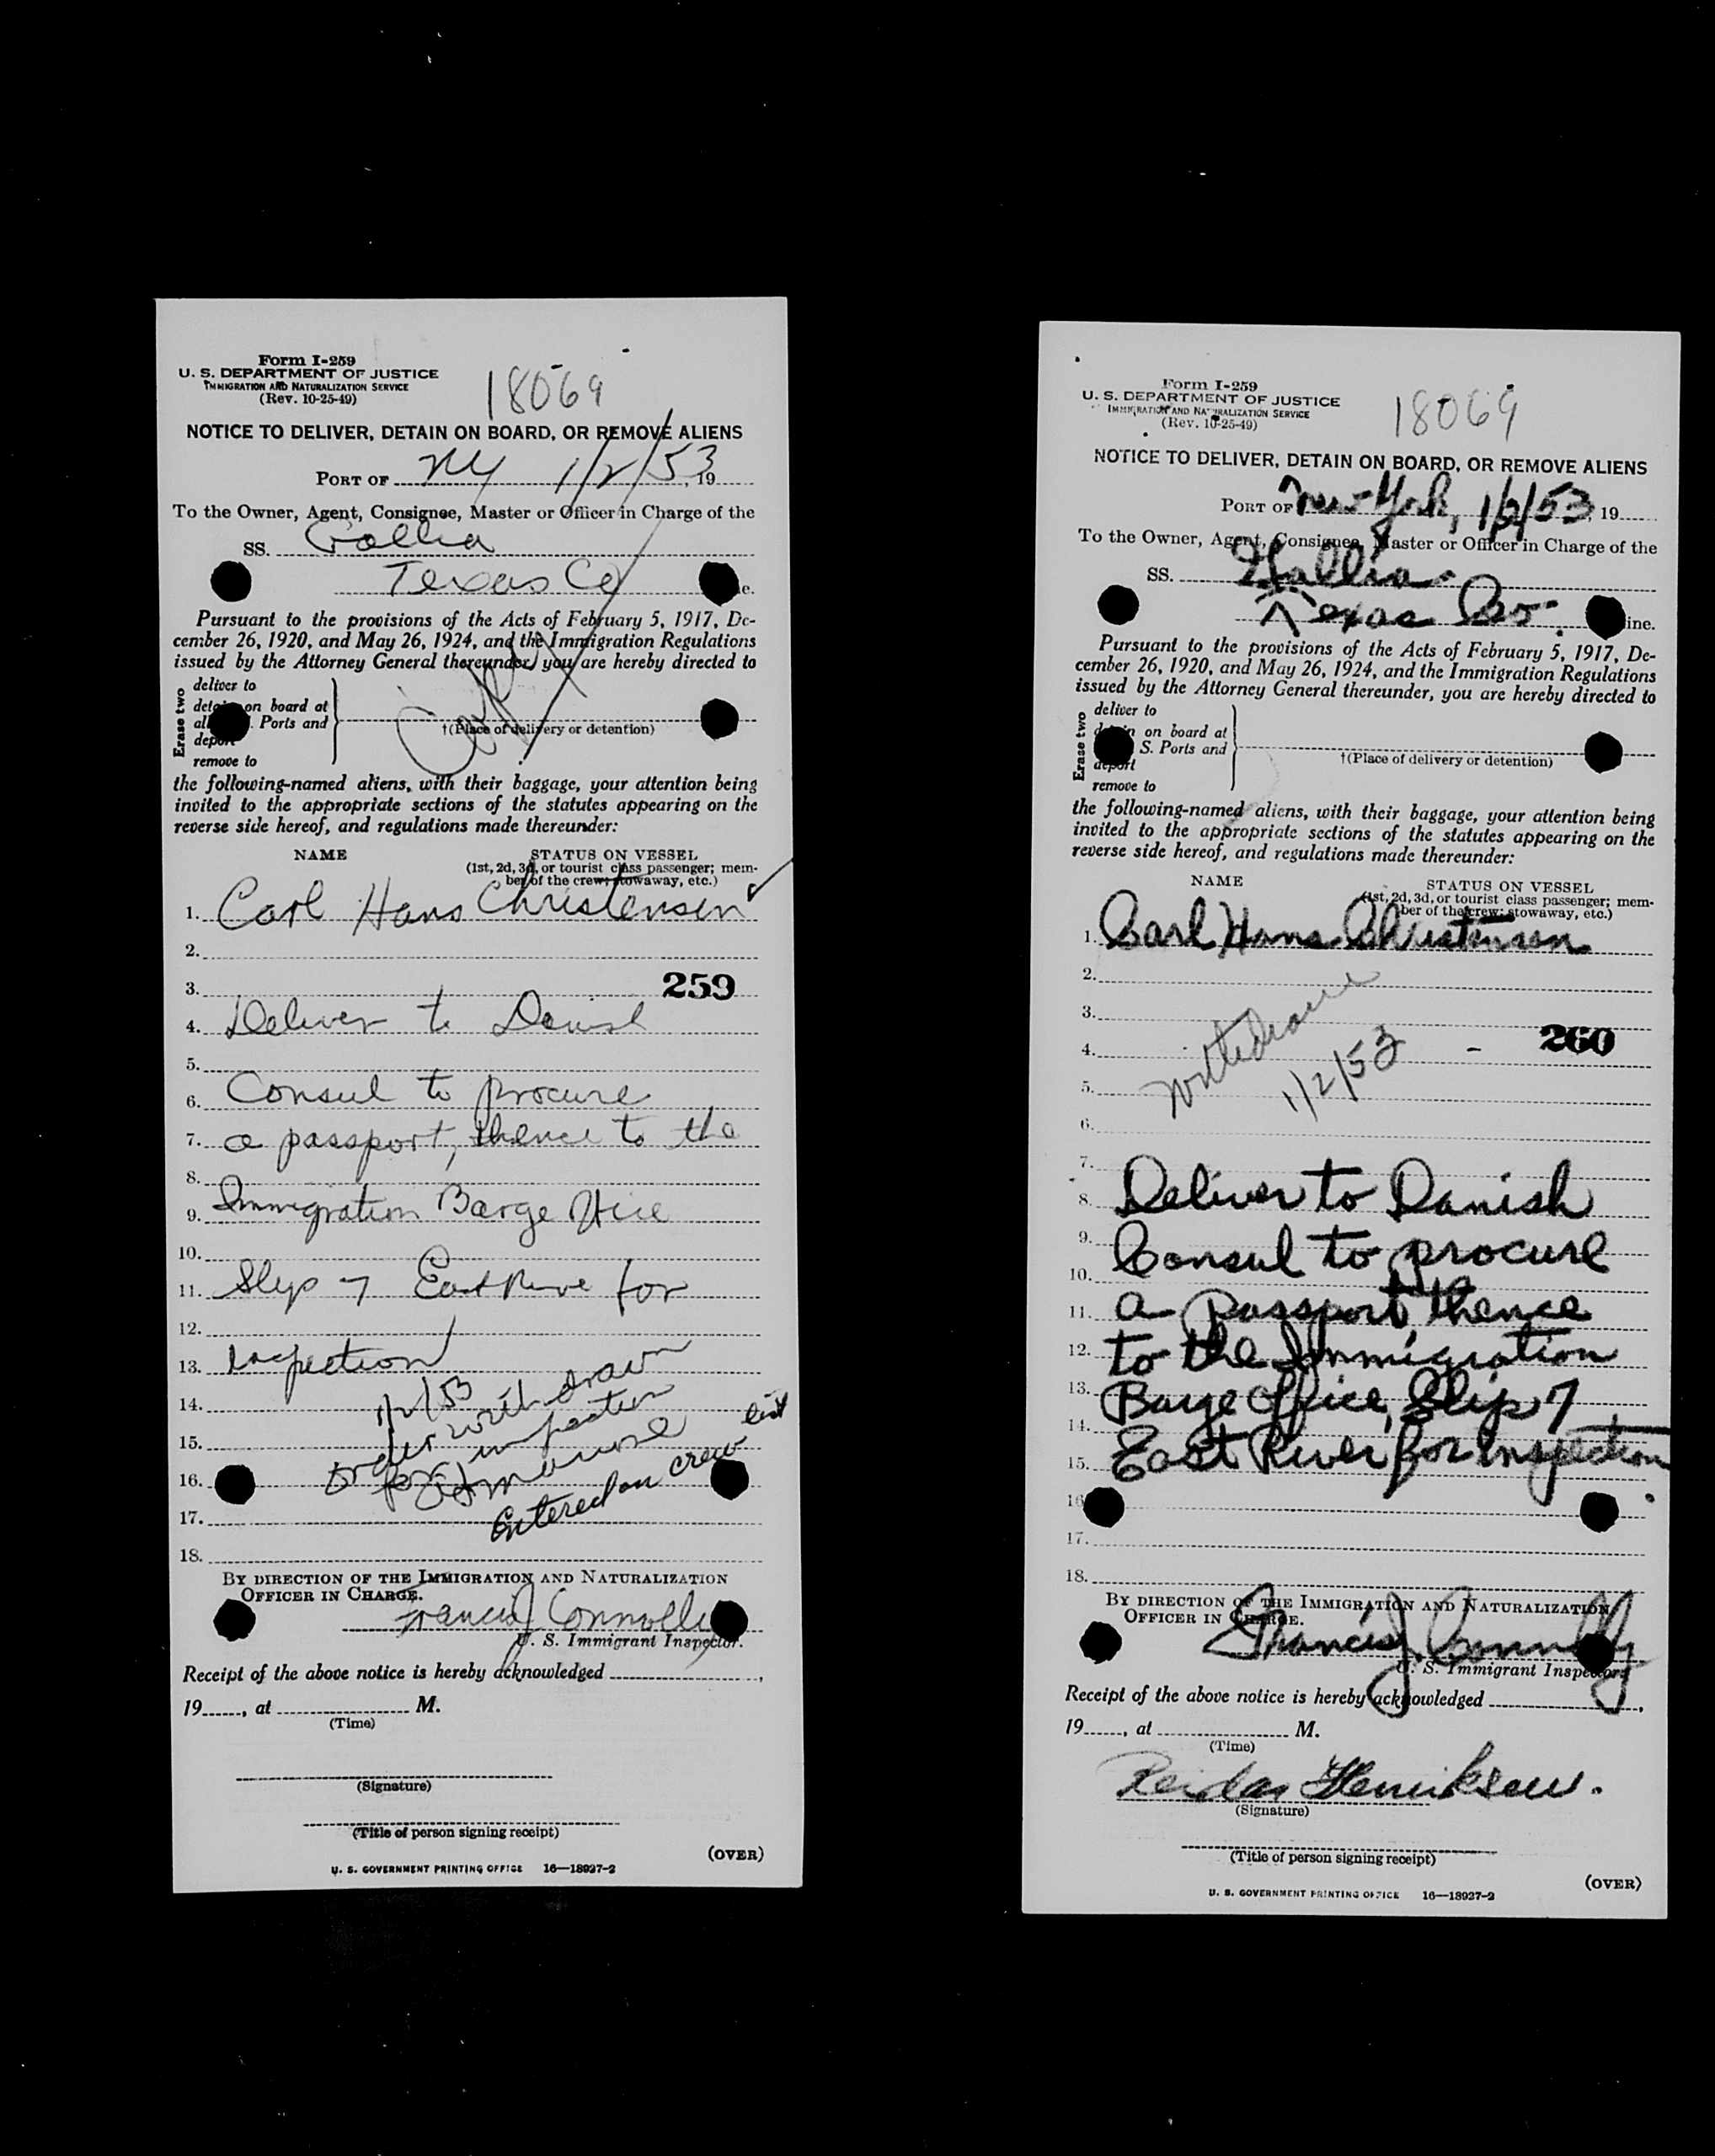 Form I-259
U. S. DEPARTMENT OF JUSTICE
IMMIGRATION AND NATURALIZATION SERVICE
(Rev. 10-25-49)
18069
NOTICE TO DELIVER, DETAIN ON BOARD, OR REMOVE ALIENS
PORT OF NY 1/2/53, 19
To the Owner, Agent, Consignee, Master or Officer in Charge of the
SS. Gallia
Texas Co
Pursuant to the provisions of the Acts of February 5, 1917, De-
cember 26, 1920, and May 26, 1924, and the Immigration Regulations
issued by the Attorney General thereunder, you are hereby directed to
Copy
Erase two
deliver to
detain on board at
all Ports and
deport
remove to
†(Place of delivery or detention)
the following-named aliens, with their baggage, your attention being
invited to the appropriate sections of the statutes appearing on the
reverse side hereof, and regulations made thereunder:
NAME STATUS ON VESSEL
(1st, 2d, 3d, or tourist class passenger; mem-
ber of the crew; stowaway, etc.)
1. Carl Hans Christensen ✓
2.
3. 259
4. Deliver to Danish
5.
6. Consul to procure
7. a passport, thence to the
8.
9. Immigration Barge Office
10.
11. Slip 7 East River for
12.
13. Inspection
14. 1/2/53
15. order withdrawn
16. for inspection
17. Entered on crew list
18.
BY DIRECTION OF THE IMMIGRATION AND NATURALIZATION
OFFICER IN CHARGE.
Francis J Connolly
U. S. Immigrant Inspector.
Receipt of the above notice is hereby acknowledged ,
19 , at M.
(Time)
(Signature)
(Title of person signing receipt)
(OVER)
U. S. GOVERNMENT PRINTING OFFICE 16—18927-2
Form I-259
U. S. DEPARTMENT OF JUSTICE
IMMIGRATION AND NATURALIZATION SERVICE
(Rev. 10-25-49)
18069
NOTICE TO DELIVER, DETAIN ON BOARD, OR REMOVE ALIENS
PORT OF New York, 1/2/53, 19
To the Owner, Agent, Consignee, Master or Officer in Charge of the
SS. Gallia
Texas Co. ine.
Pursuant to the provisions of the Acts of February 5, 1917, De-
cember 26, 1920, and May 26, 1924, and the Immigration Regulations
issued by the Attorney General thereunder, you are hereby directed to
Erase two
deliver to
detain on board at
S. Ports and
deport
remove to
†(Place of delivery or detention)
the following-named aliens, with their baggage, your attention being
invited to the appropriate sections of the statutes appearing on the
reverse side hereof, and regulations made thereunder:
NAME STATUS ON VESSEL
(1st, 2d, 3d, or tourist class passenger; mem-
ber of the crew; stowaway, etc.)
1. Carl Hans Christensen
2.
3. withdrawn
4. 1/2/53 - 260
5.
6.
7.
8. Deliver to Danish
9. Consul to procure
10.
11. a Passport thence
12. to the Immigration
13. Barge Office, Slip 7
14.
15. East River for inspection.
16
17.
18.
BY DIRECTION OF THE IMMIGRATION AND NATURALIZATION
OFFICER IN CHARGE.
Francis J. Connolly
U. S. Immigrant Inspector.
Receipt of the above notice is hereby acknowledged ,
19 , at M.
(Time)
Reidar Henriksen.
(Signature)
(Title of person signing receipt)
(OVER)
U. S. GOVERNMENT PRINTING OFFICE 16—18927-2